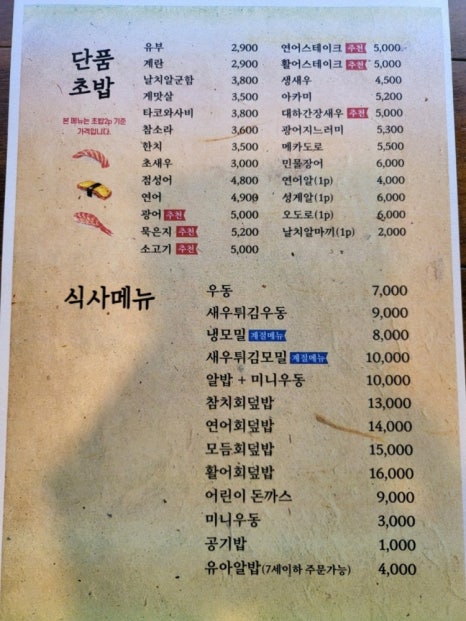 단품
초밥
본 메뉴는 초밥2p 기준
가격입니다.
유부 2,900
계란 2,900
날치알군함 3,800
게맛살 3,500
타코와사비 3,800
참소라 3,600
한치 3,500
초새우 3,000
점성어 4,800
연어 4,900
광어 추천 5,000
묵은지 추천 5,200
소고기 추천 5,000
연어스테이크 추천 5,000
활어스테이크 추천 5,000
생새우 4,500
아카미 5,200
대하간장새우 추천 5,000
광어지느러미 5,300
메카도로 5,500
민물장어 6,000
연어알(1p) 4,000
성게알(1p) 6,000
오도로(1p) 6,000
날치알마끼(1p) 2,000
식사메뉴
우동 7,000
새우튀김우동 9,000
냉모밀 계절메뉴 8,000
새우튀김모밀 계절메뉴 10,000
알밥 + 미니우동 10,000
참치회덮밥 13,000
연어회덮밥 14,000
모듬회덮밥 15,000
활어회덮밥 16,000
어린이 돈까스 9,000
미니우동 3,000
공기밥 1,000
유아알밥(7세이하 주문가능) 4,000